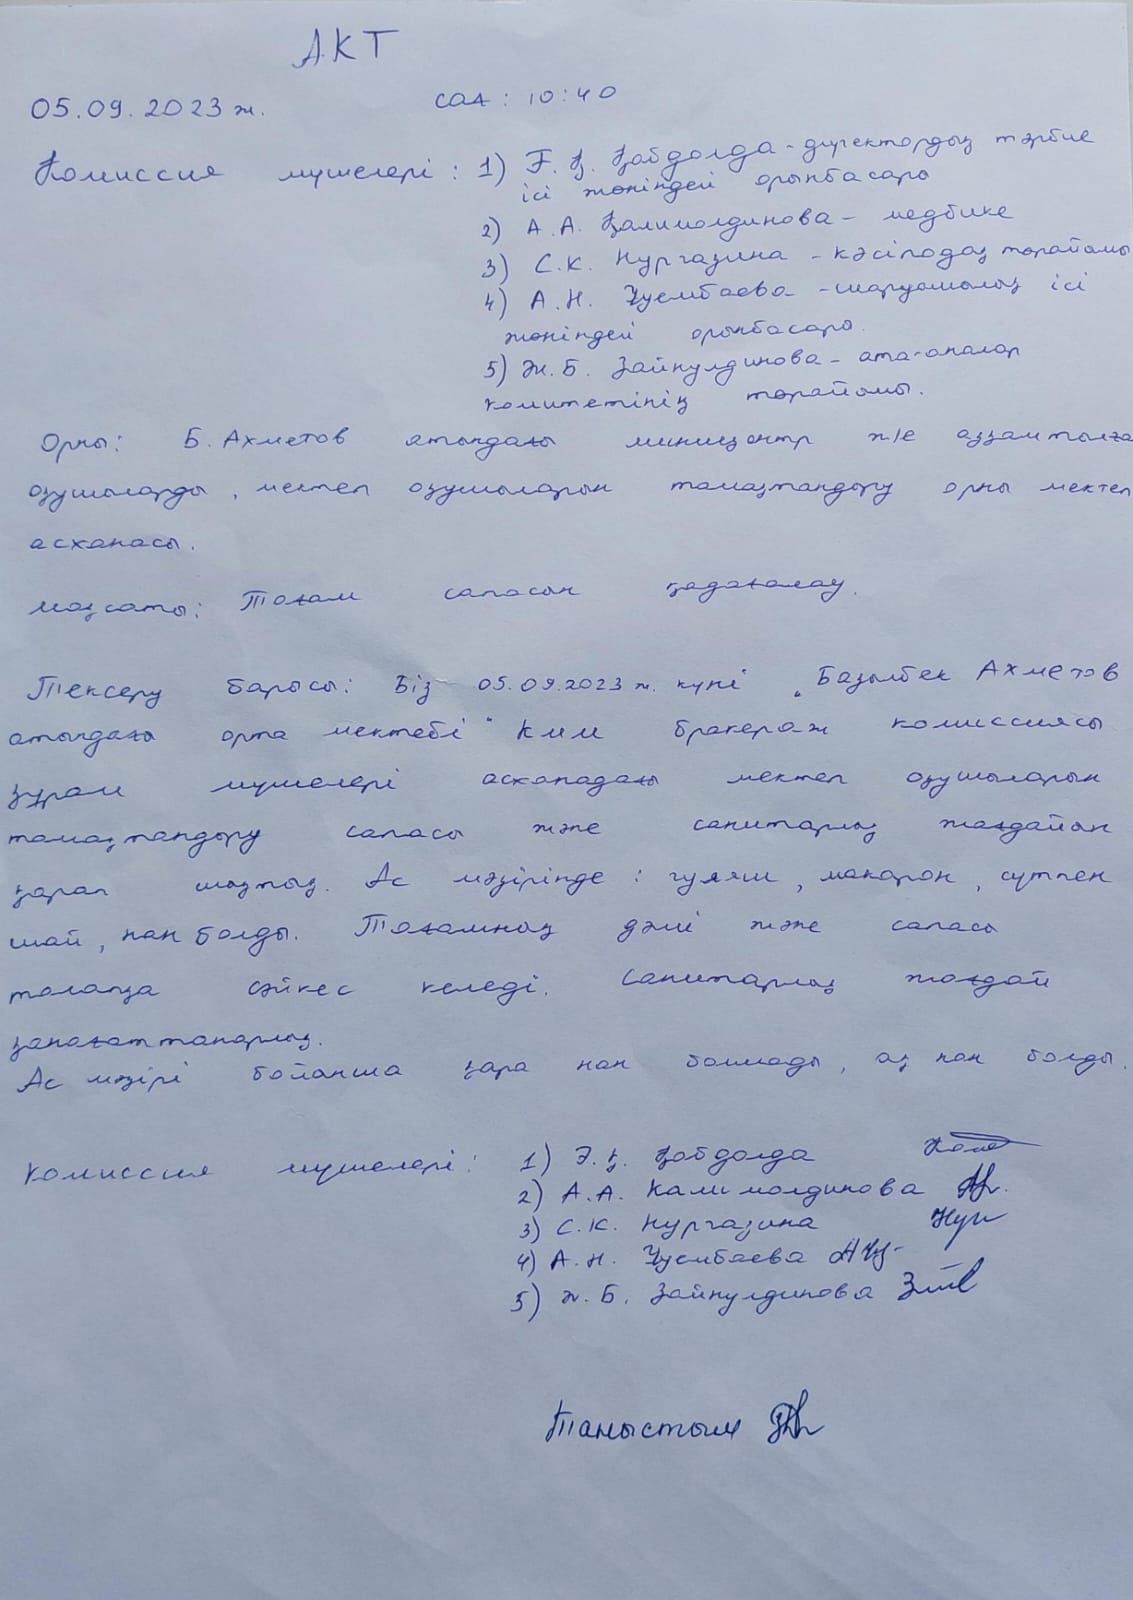 АКТ
05.09.2023 ж. сағ: 10:40
Комиссия мүшелері: 1) Ғ. Қ. Қабдолда - директордың тәрбие
ісі жөніндегі орынбасары
2) А.А. Қалимолдинова - медбике
3) С.К. Нургазина - кәсіподақ төрайымы
4) А.Н. Чуембаева - шаруашылық ісі
жөніндегі орынбасары.
5) Ж.Б. Зайнулдинова - ата-аналар
комитетінің төрайымы.
Орны: Б. Ахметов атындағы миницентр және аз қамтылған
оқушыларды, мектеп оқушыларын тамақтандыру орны мектеп
асханасы.
Мақсаты: Тағам сапасын қадағалау.
Тексеру барысы: Біз 05.09.2023 ж. күні "Базылбек Ахметов
атындағы орта мектебі" КММ бракераж комиссиясы
құрам мүшелері асханадағы мектеп оқушыларын
тамақтандыру сапасы және санитарлық жағдайын
қарап шықтық. Ас мәзірінде: гуляш, макарон, сүтпен
шай, нан болды. Тағамның дәмі және сапасы
талапқа сәйкес келеді. Санитарлық жағдай
қанағаттанарлық.
Ас мәзірі бойынша қара нан болмады, ақ нан болды.
Комиссия мүшелері: 1) Ә.Қ. Қабдолда
2) А.А. Калимолдинова
3) С.К. Нургазина
4) А.Н. Чуембаева
5) Ж.Б. Зайнулдинова
Таныстым